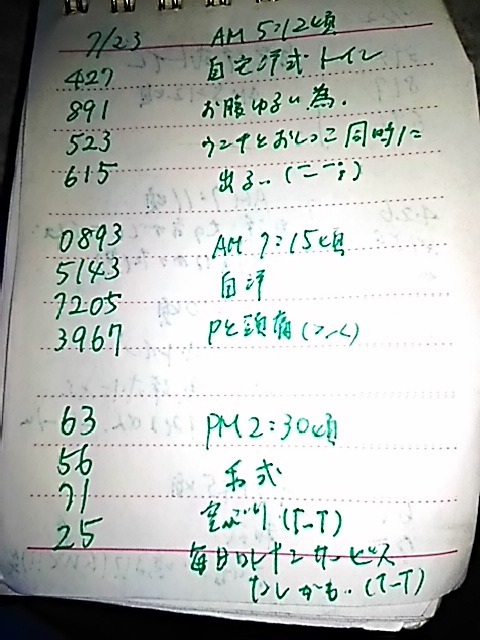 7/23 AM 5:12頃
427 自宅洋式トイレ
891 お腹ゆるい為.
523 ウンチとおしっこ同時に
615 出る..(ーー;)
0893 AM 7:15頃
5143 自洋
7205 Pと頭痛(>_<)
3967
63 PM 2:30頃
56 和式
71 空ぶり (T-T)
25
毎日 サービス
なしかも..(T-T)